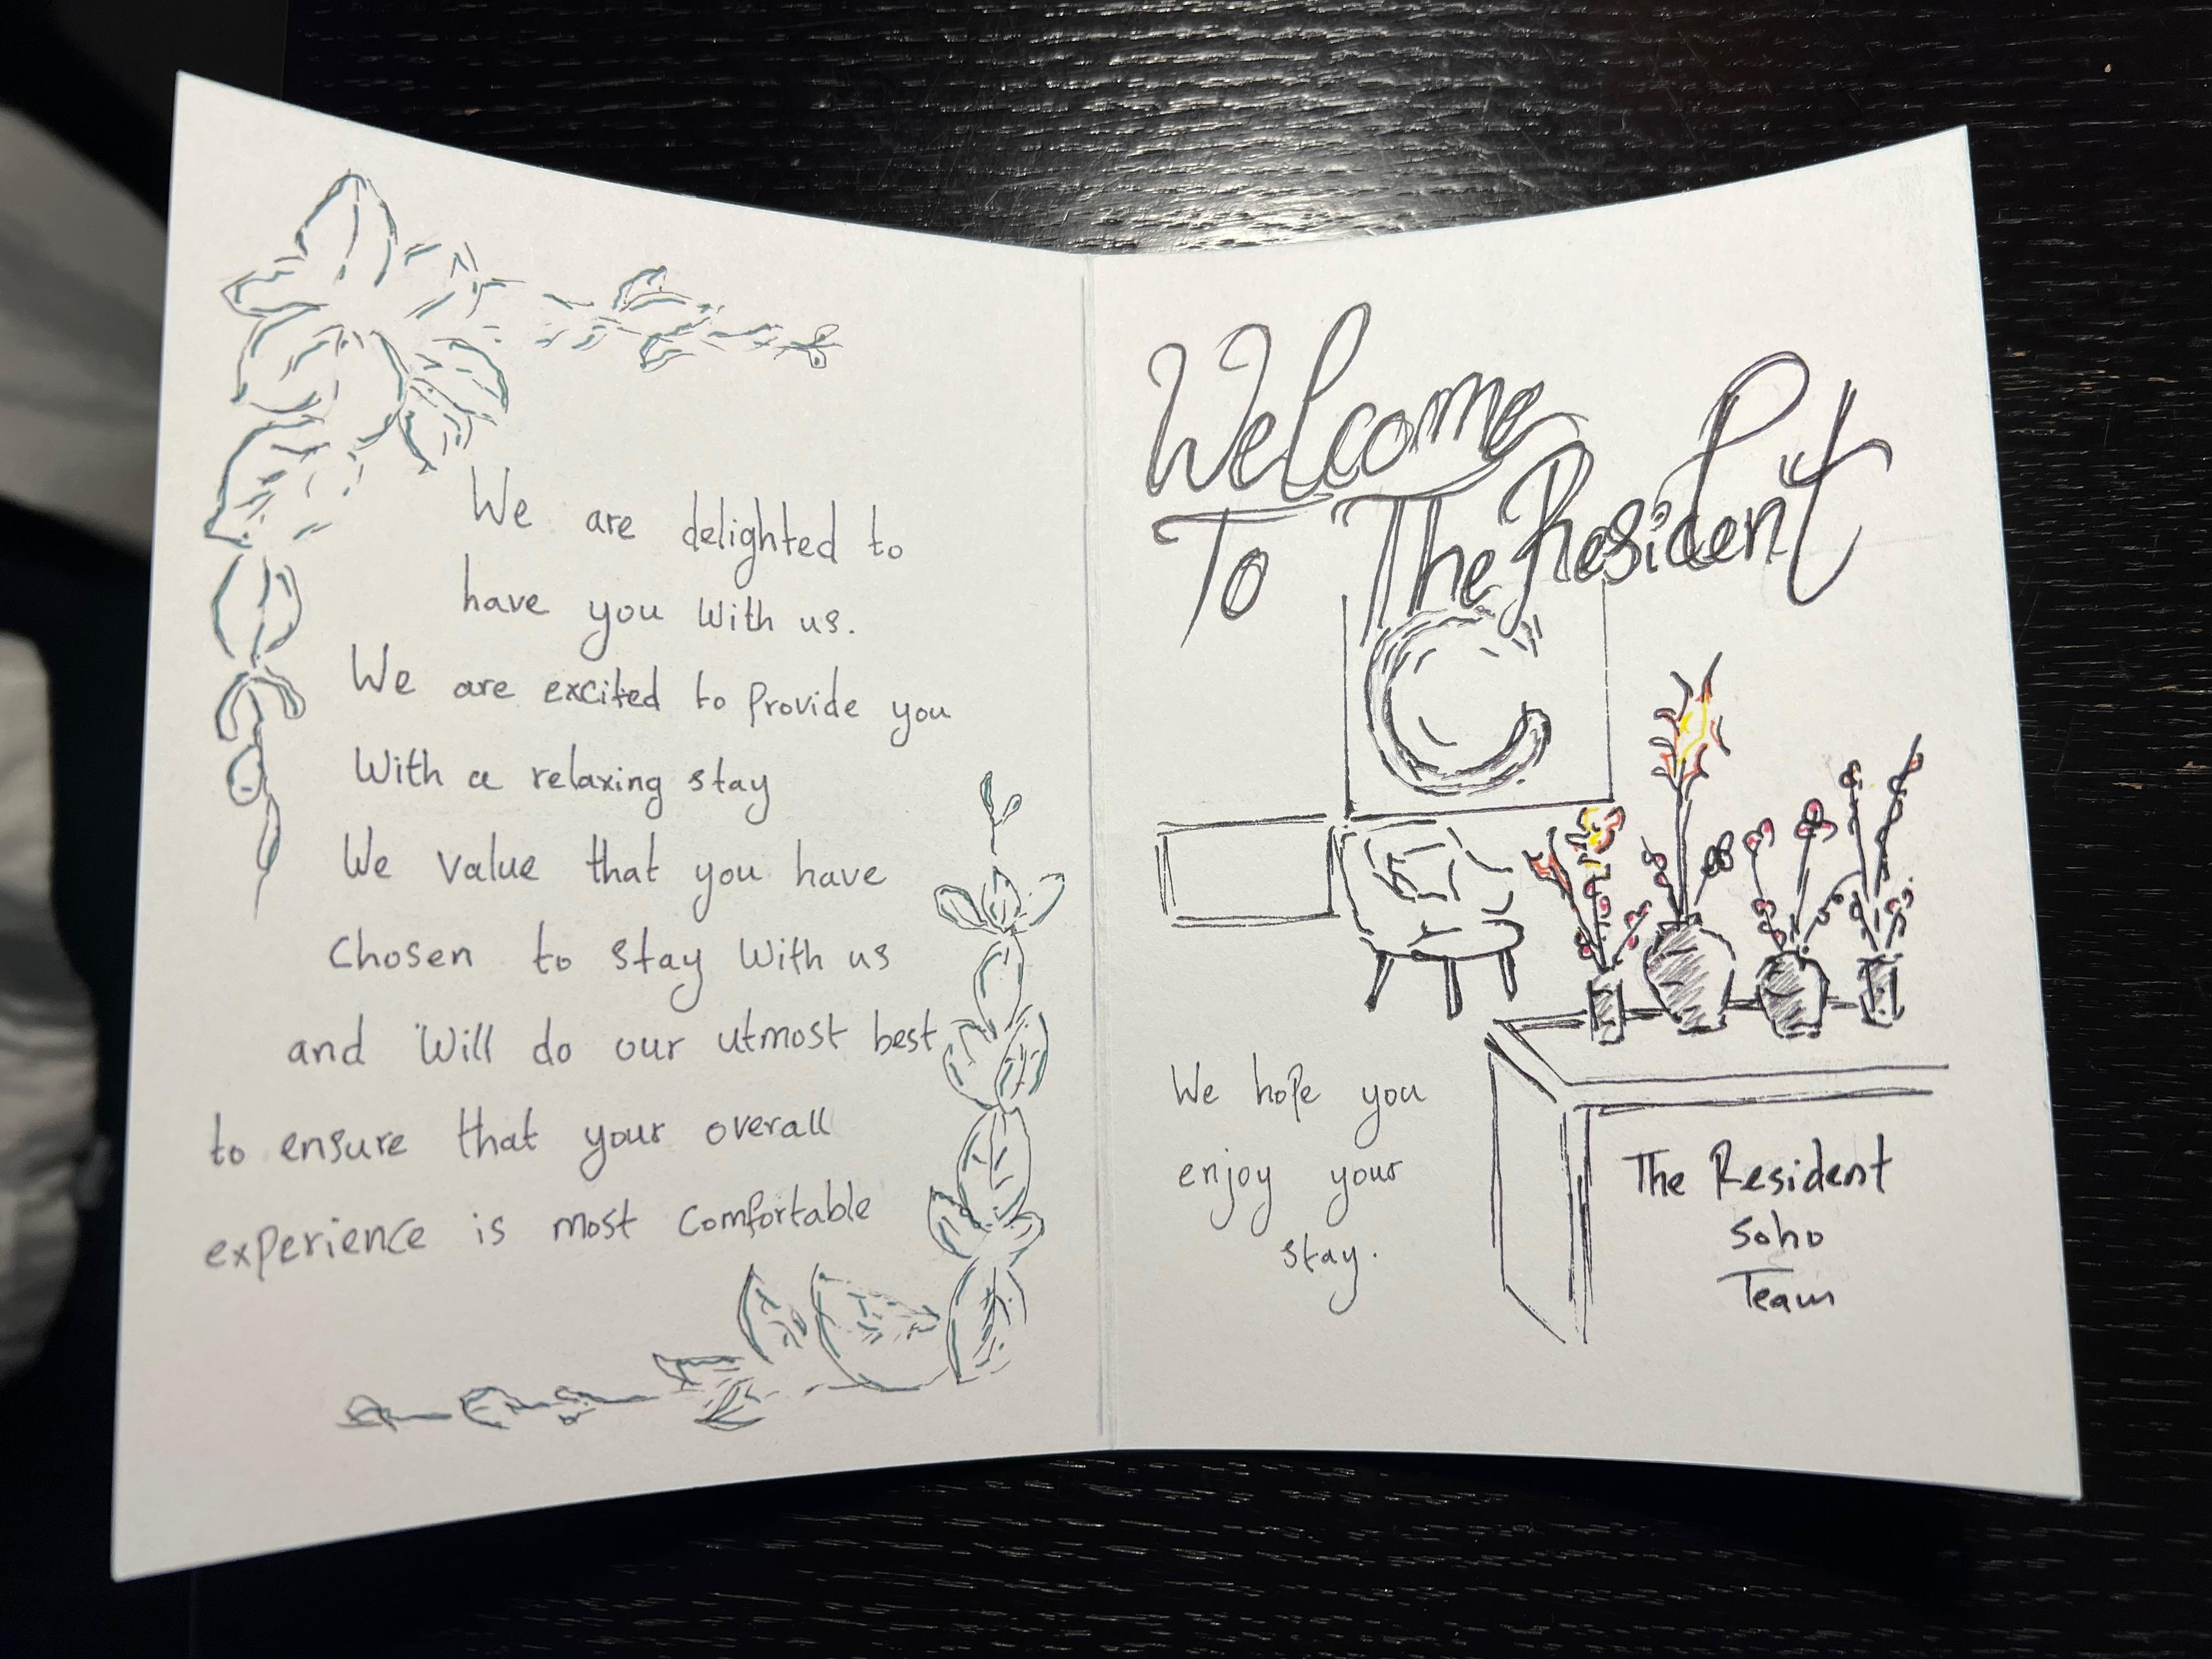 We are delighted to
have you With us.
We are excited to Provide you
With a relaxing stay
We value that you have
Chosen to stay With us
and Will do our utmost best
to ensure that your overall
experience is most Comfortable
Welcome
To The Resident
We hope you
enjoy your
stay.
The Resident
Soho
Team